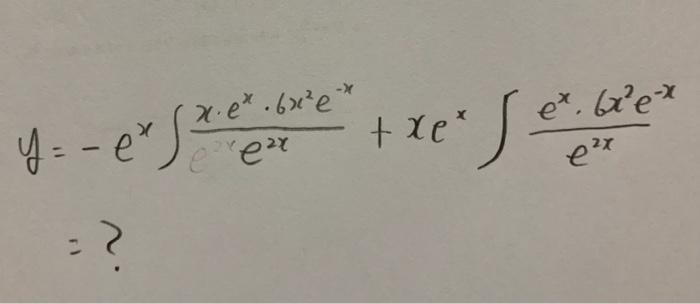 y = - eˣ ∫ (x · eˣ · 6x²e⁻ˣ) / e²ˣ + xeˣ ∫ (eˣ · 6x²e⁻ˣ) / e²ˣ
= ?